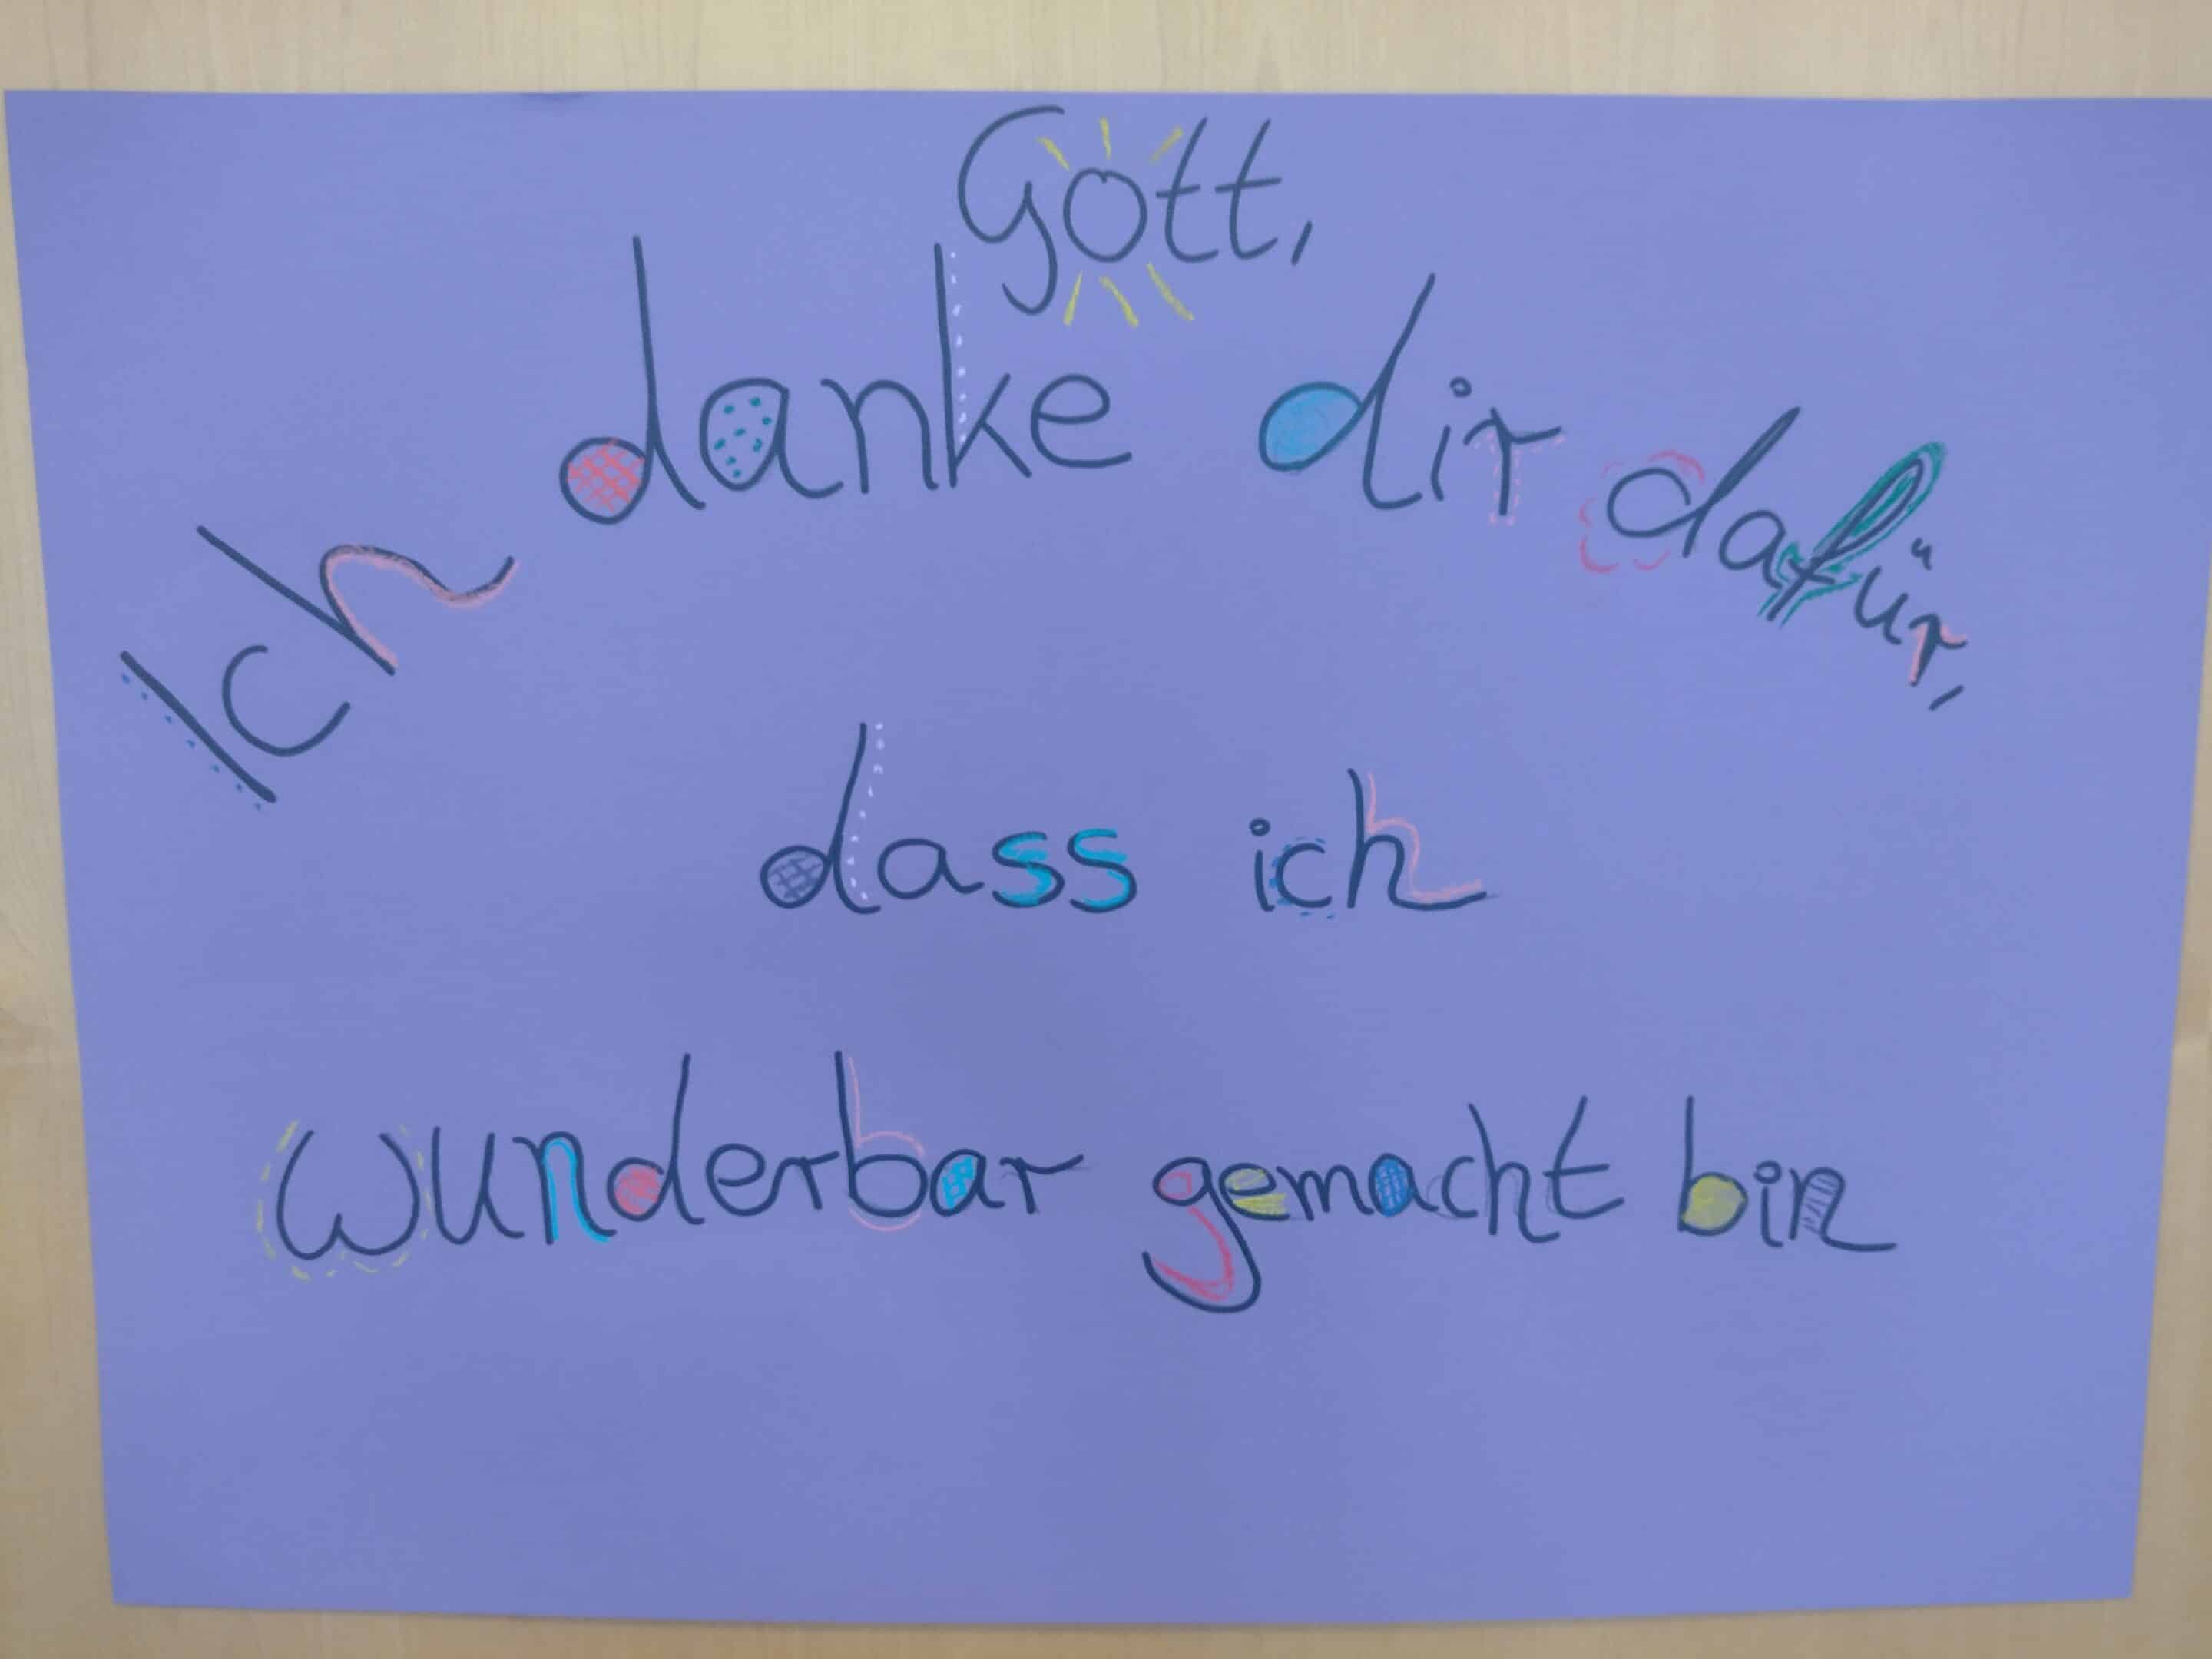 Gott,
Ich danke dir dafür,
dass ich
wunderbar gemacht bin